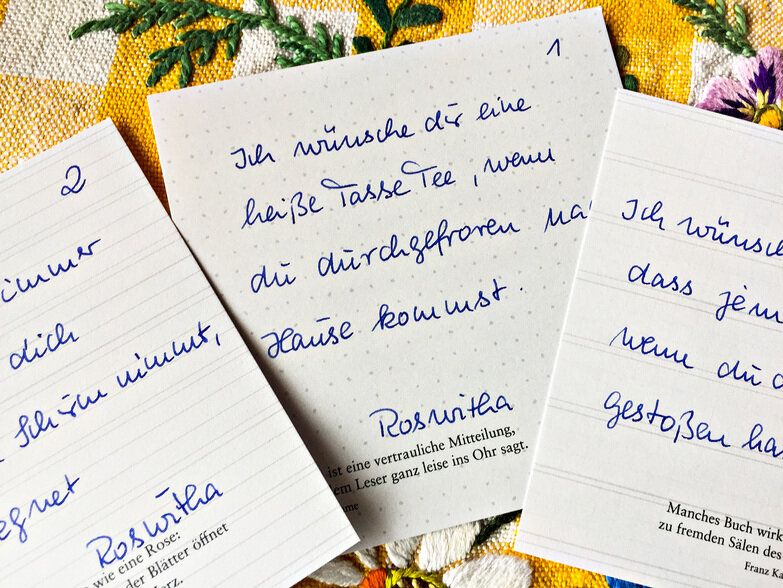 2
immer
dich
Schirm nimmt,
egnet
Roswitha
wie eine Rose:
der Blätter öffnet
rz.
1
Ich wünsche dir eine
heiße Tasse Tee, wenn
du durchgefroren na
Hause kommst.
Roswitha
ist eine vertrauliche Mitteilung,
em Leser ganz leise ins Ohr sagt.
me
Ich wünsch
dass jem
wenn du d
gestoßen ha
Manches Buch wirk
zu fremden Sälen des
Franz Ka